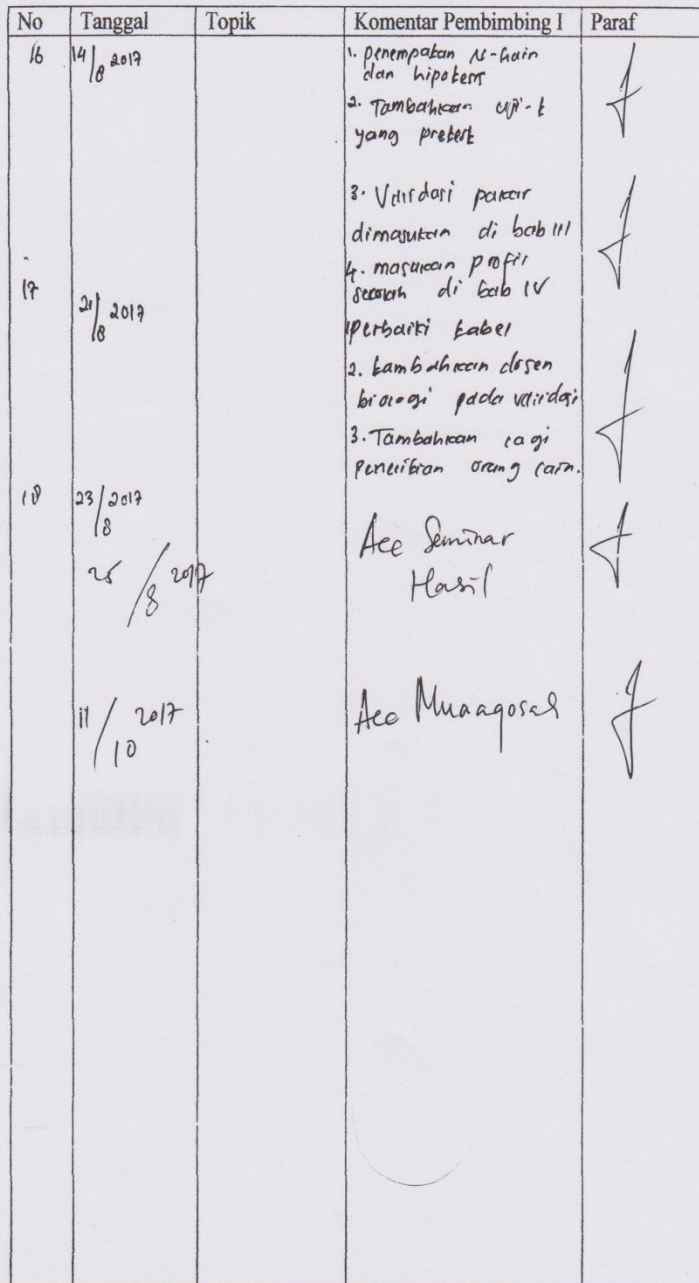 No Tanggal Topik Komentar Pembimbing I Paraf
16 14/8 2017 1. penempatan N-Gain
dan hipotesis
2. Tambahkan uji-t
yang pretest
3. Validasi pakar
dimasukan di bab III
4. masukan profil
sekolah di bab IV
17 21/8 2017 1 perbaiki tabel
2. tambahkan dosen
biologi pada validasi
3. Tambahkan lagi
penelitian orang lain.
18 23/8 2017
25/8 2017 Acc Seminar
Hasil
11/10 2017 Acc Munaqosah